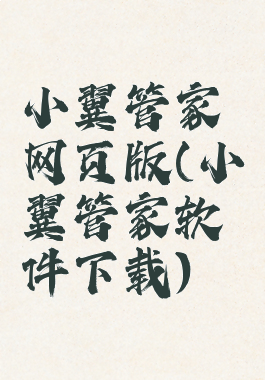 小翼管家
网页版(小
翼管家软
件下载)